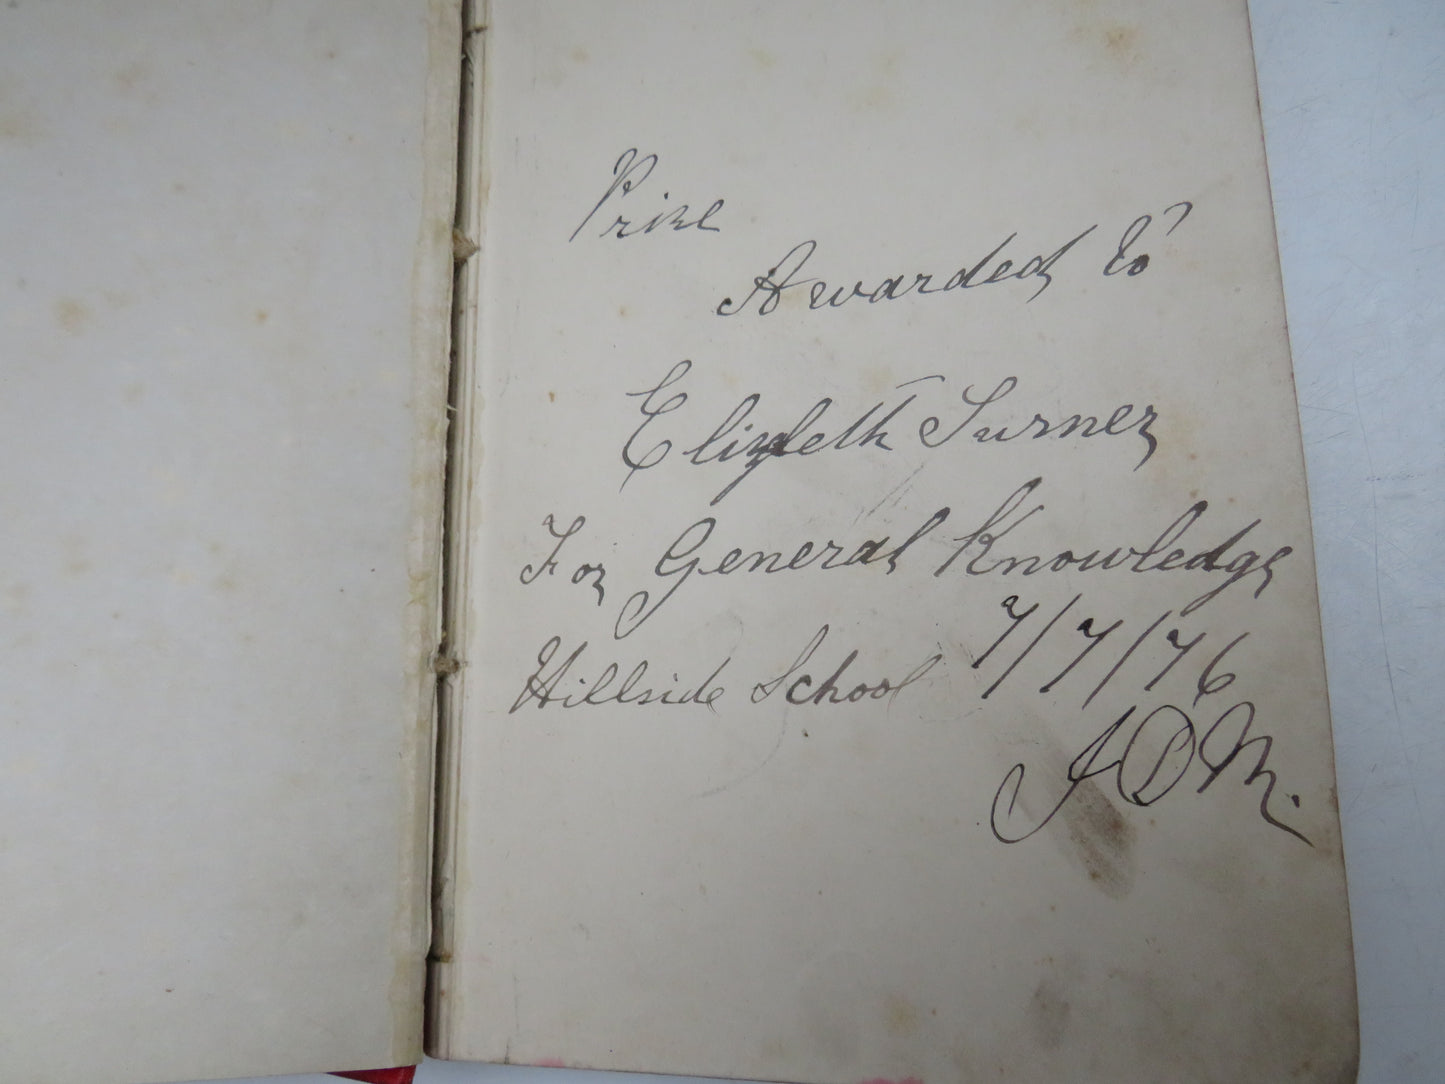 Prize
Awarded to
Elizbeth Turner
For General Knowledge
Hillside School 7/7/76
J D M.